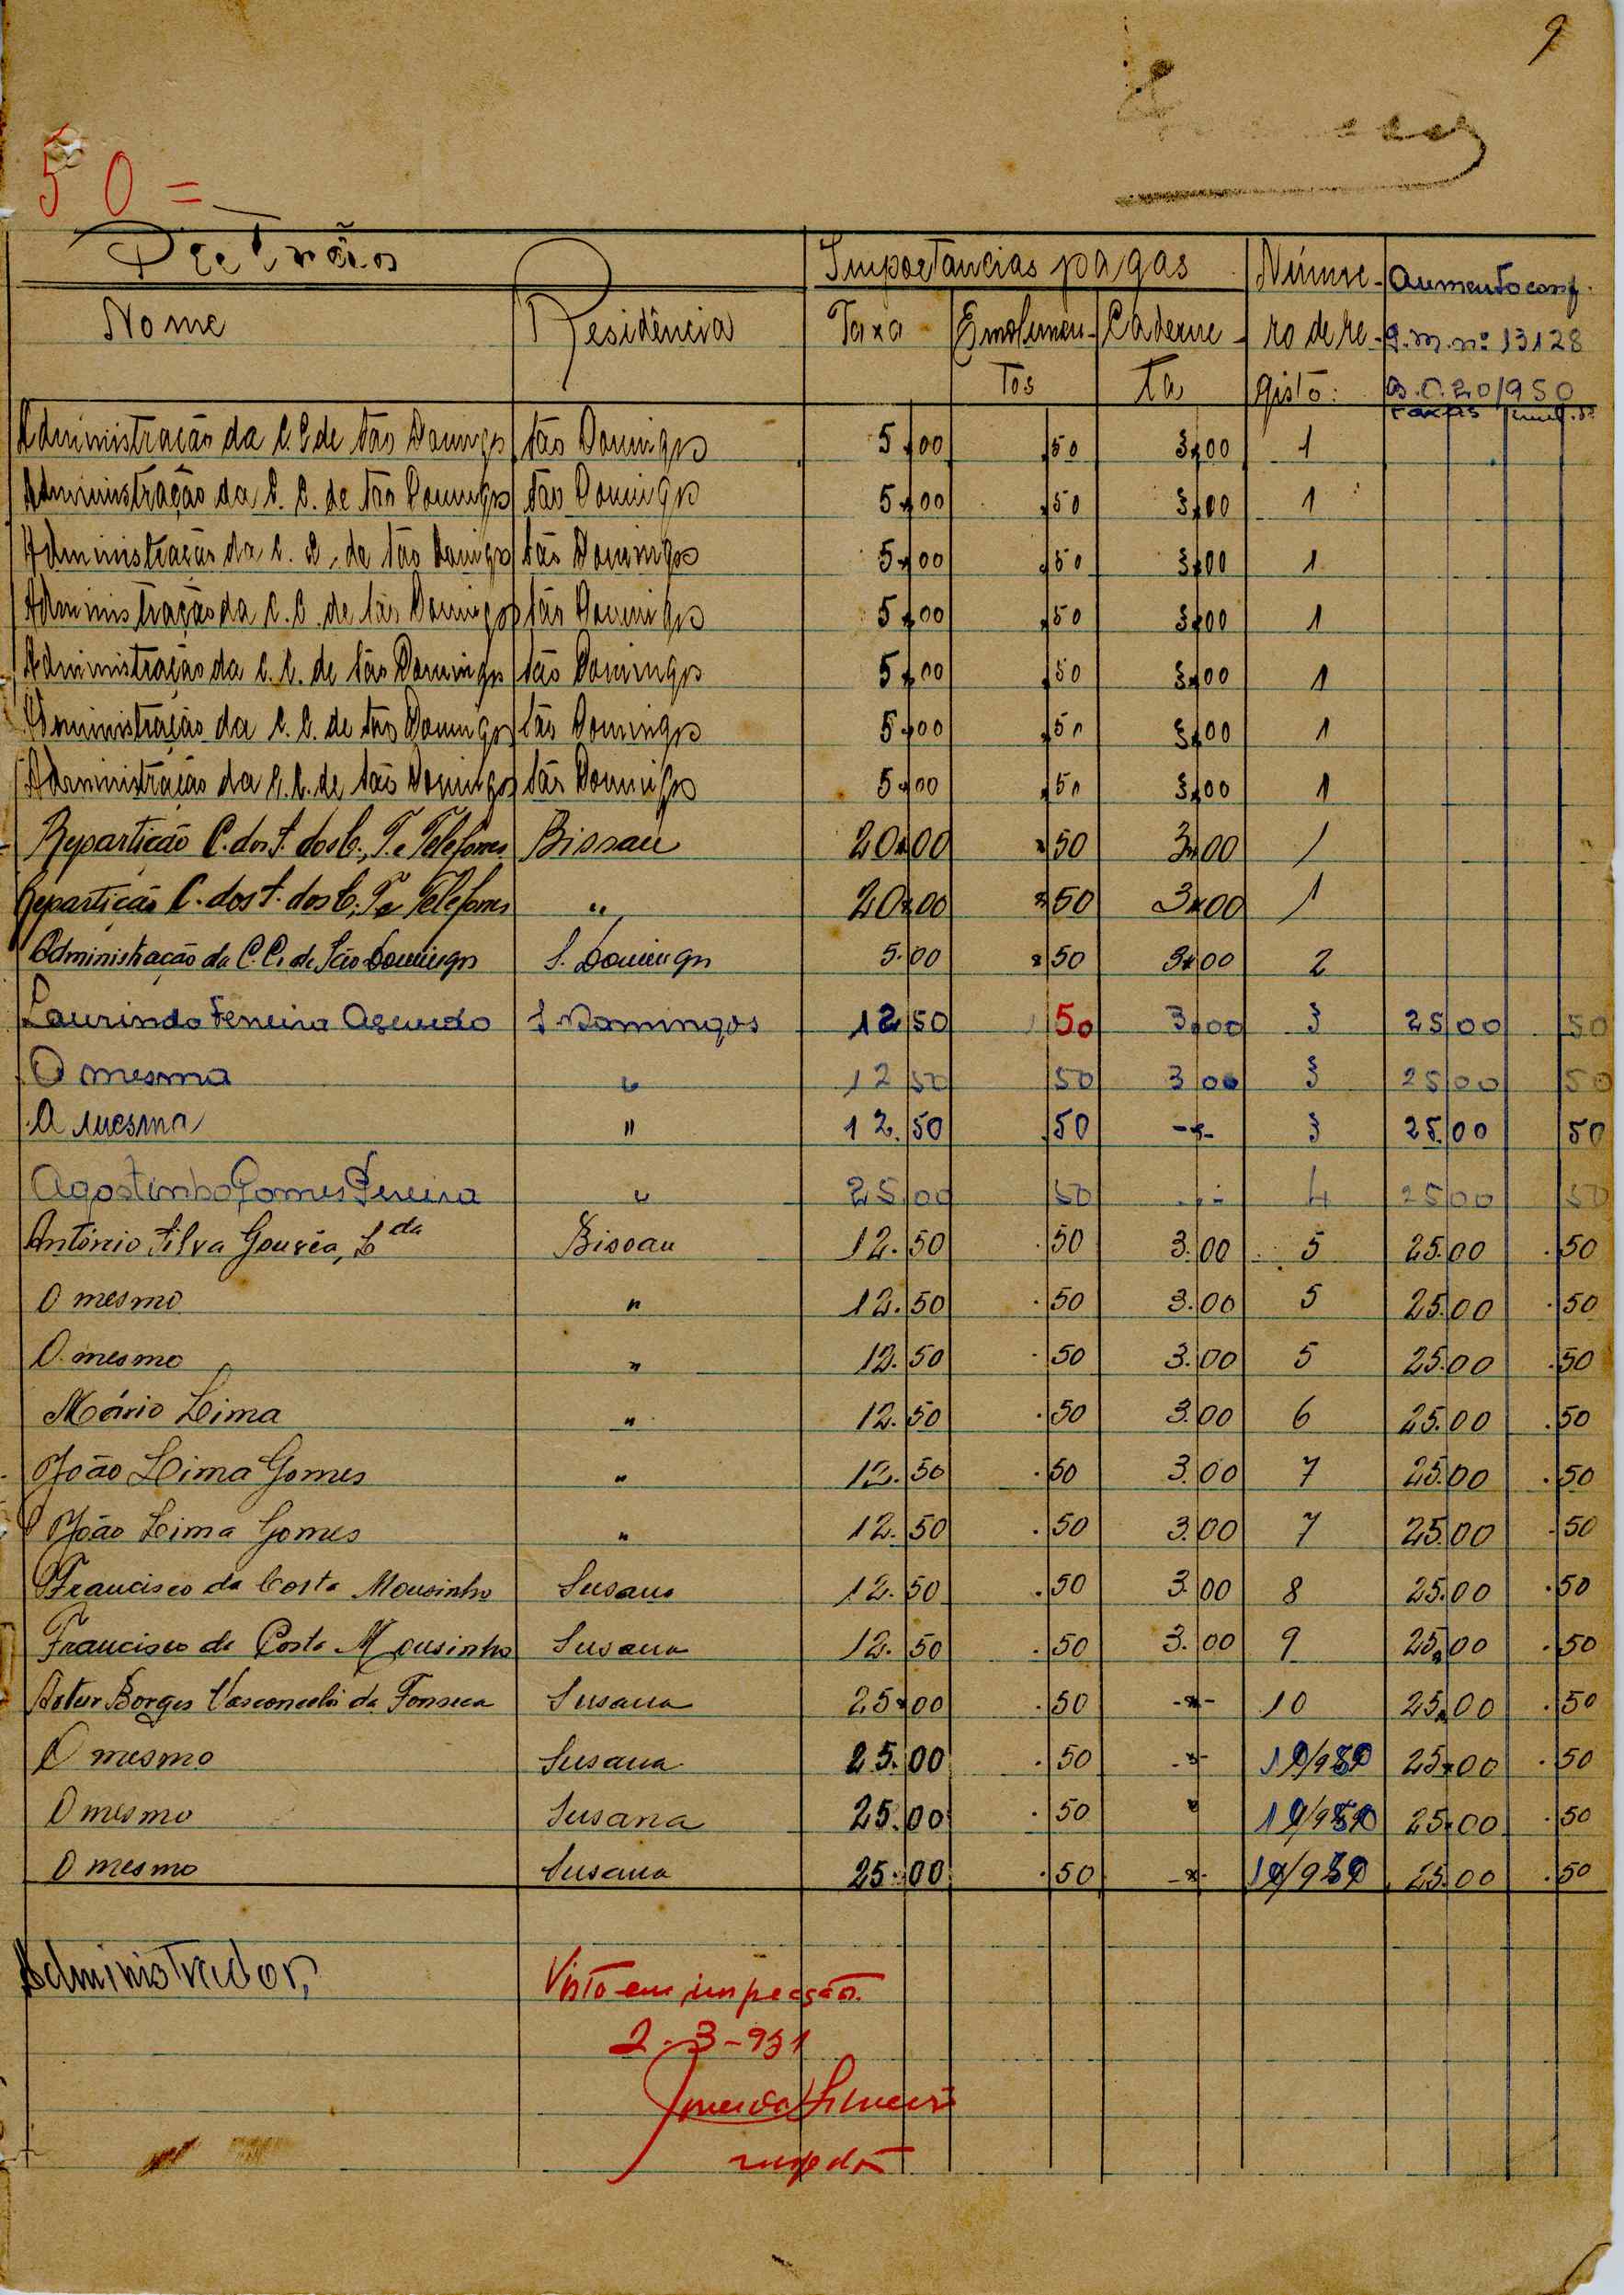 9
50=
Patrão
Importancias pagas
Núme-
Aumento conf.
Nome
Residência
Taxa
Emolumen-
Caderne-
ro de re-
P.M. nº 13128
tos
ta
gisto:
B.O. 20/950
taxas
Administração da C. C. de São Domingos São Domingos 5,00 ,50 3,00 1
Administração da C. C. de São Domingos São Domingos 5,00 ,50 3,00 1
Administração da C. C. de São Domingos São Domingos 5,00 ,50 3,00 1
Administração da C. C. de São Domingos São Domingos 5,00 ,50 3,00 1
Administração da C. C. de São Domingos São Domingos 5,00 ,50 3,00 1
Administração da C. C. de São Domingos São Domingos 5,00 ,50 3,00 1
Administração da C. C. de São Domingos São Domingos 5,00 ,50 3,00 1
Repartição C. dos S. dos C., T. e Telefones Bissau 20,00 ,50 3,00 1
Repartição C. dos S. dos C., T. e Telefones " 20,00 ,50 3,00 1
Administração da C. C. de São Domingos S. Domingos 5.00 ,50 3,00 2
Laurindo Ferreira Azevedo S. Domingos 12 50 50 3,00 3 25 00 50
O mesmo " 12 50 50 3 00 3 25 00 50
O mesmo " 12.50 .50 -"- 3 25.00 50
Agostinho Gomes Pereira " 25 00 50 -"- 4 25 00 50
António Silva Gouvêa, Lda Bissau 12.50 .50 3.00 5 25.00 .50
O mesmo " 12.50 .50 3.00 5 25.00 .50
O mesmo " 12.50 .50 3.00 5 25.00 .50
Mário Lima " 12.50 .50 3.00 6 25.00 .50
João Lima Gomes " 12.50 .50 3.00 7 25.00 .50
João Lima Gomes " 12.50 .50 3.00 7 25.00 .50
Francisco da Costa Mousinho Susana 12.50 .50 3.00 8 25.00 .50
Francisco da Costa Mousinho Susana 12.50 .50 3.00 9 25,00 .50
Artur Borges Vasconcelos da Fonseca Susana 25,00 .50 -"- 10 25,00 .50
O mesmo Susana 25.00 .50 -"- 25,00 .50
O mesmo Susana 25.00 .50 " 25,00 .50
O mesmo Susana 25.00 .50 -"- 25.00 .50
Administrador,
Visto em inspecção
2-3-951